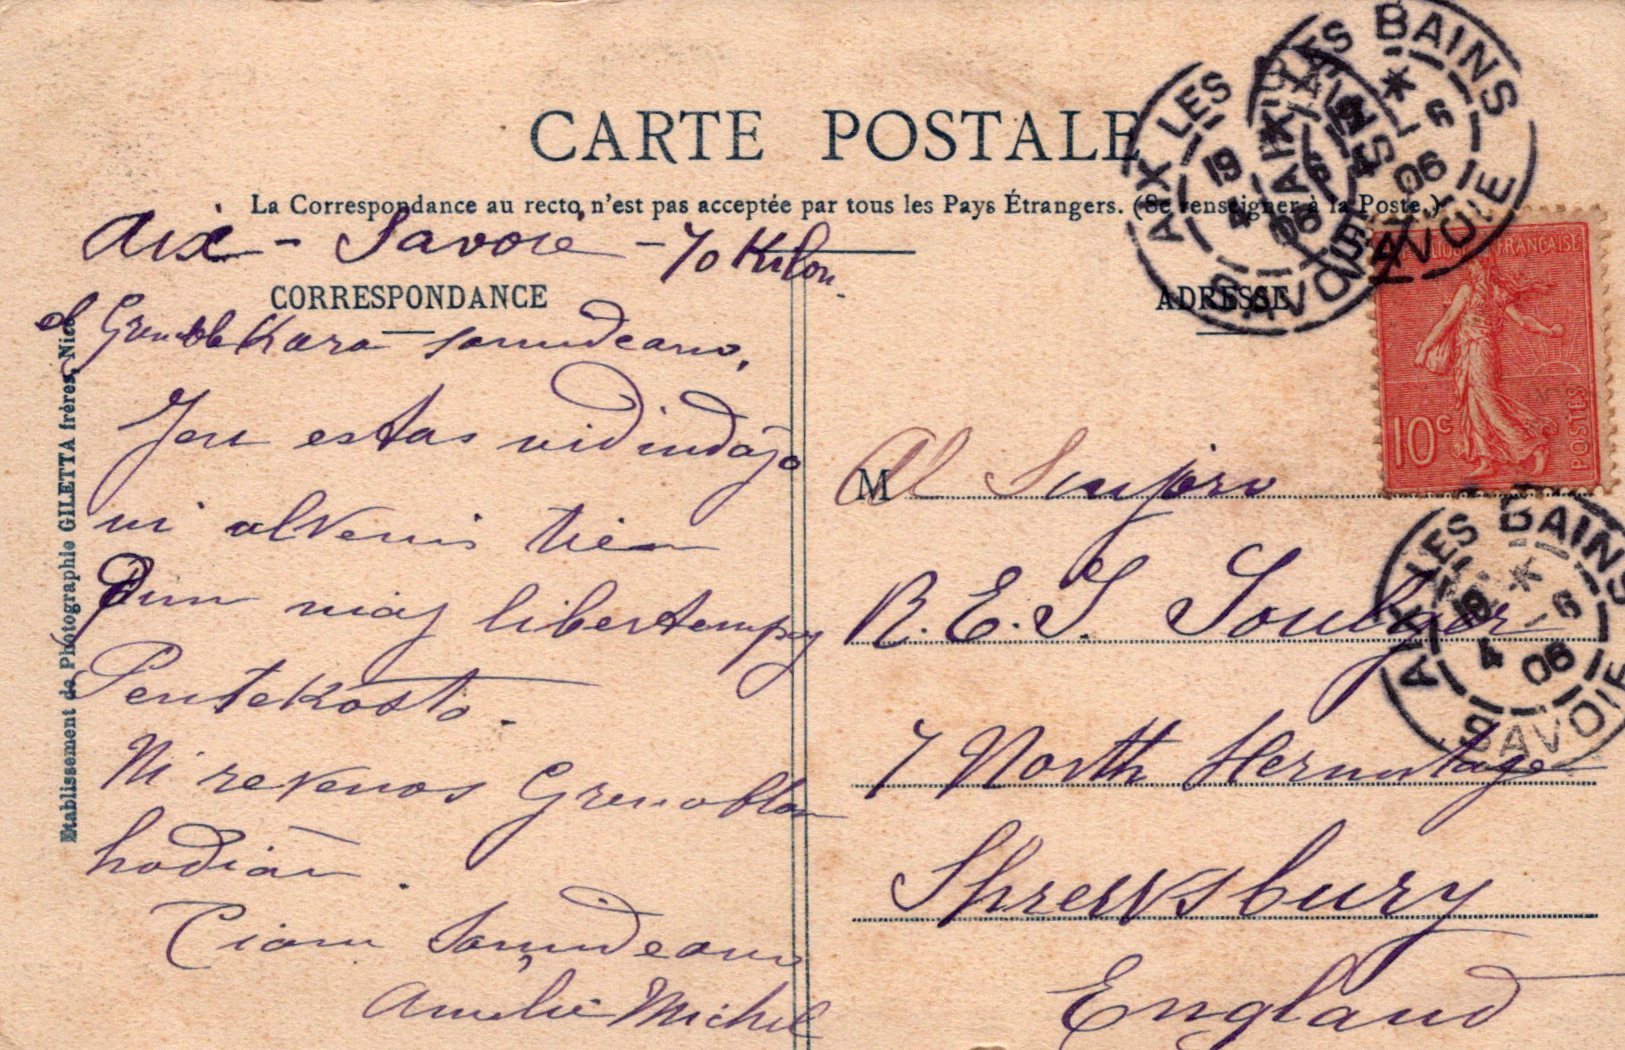 CARTE POSTALE
La Correspondance au recto, n'est pas acceptée par tous les Pays Étrangers. (Se renseigner à la Poste.)
Aix - Savoie - 70 Kilom.
el Grenoble Kara samideano,
CORRESPONDANCE
Jen estas vidindaĵo
ni alvenis tien
dum niaj libertempoj
Pentekosto.
Ni revenos Grenoblon
hodiaŭ.
Ciam Samideano
Amelie Michel
Etablissement de Photographie GILETTA frères, Nice
ADRESSE
M Al Sinjoro
R. E. S. Soulger
7 North Hermitage
Shrewsbury
England
AIX LES BAINS
19
4 - 6
06
SAVOIE
AIX LES BAINS
19
4 - 6
06
SAVOIE
RÉPUBLIQUE FRANÇAISE
10c
POSTES
AIX LES BAINS
19
4 - 6
06
SAVOIE